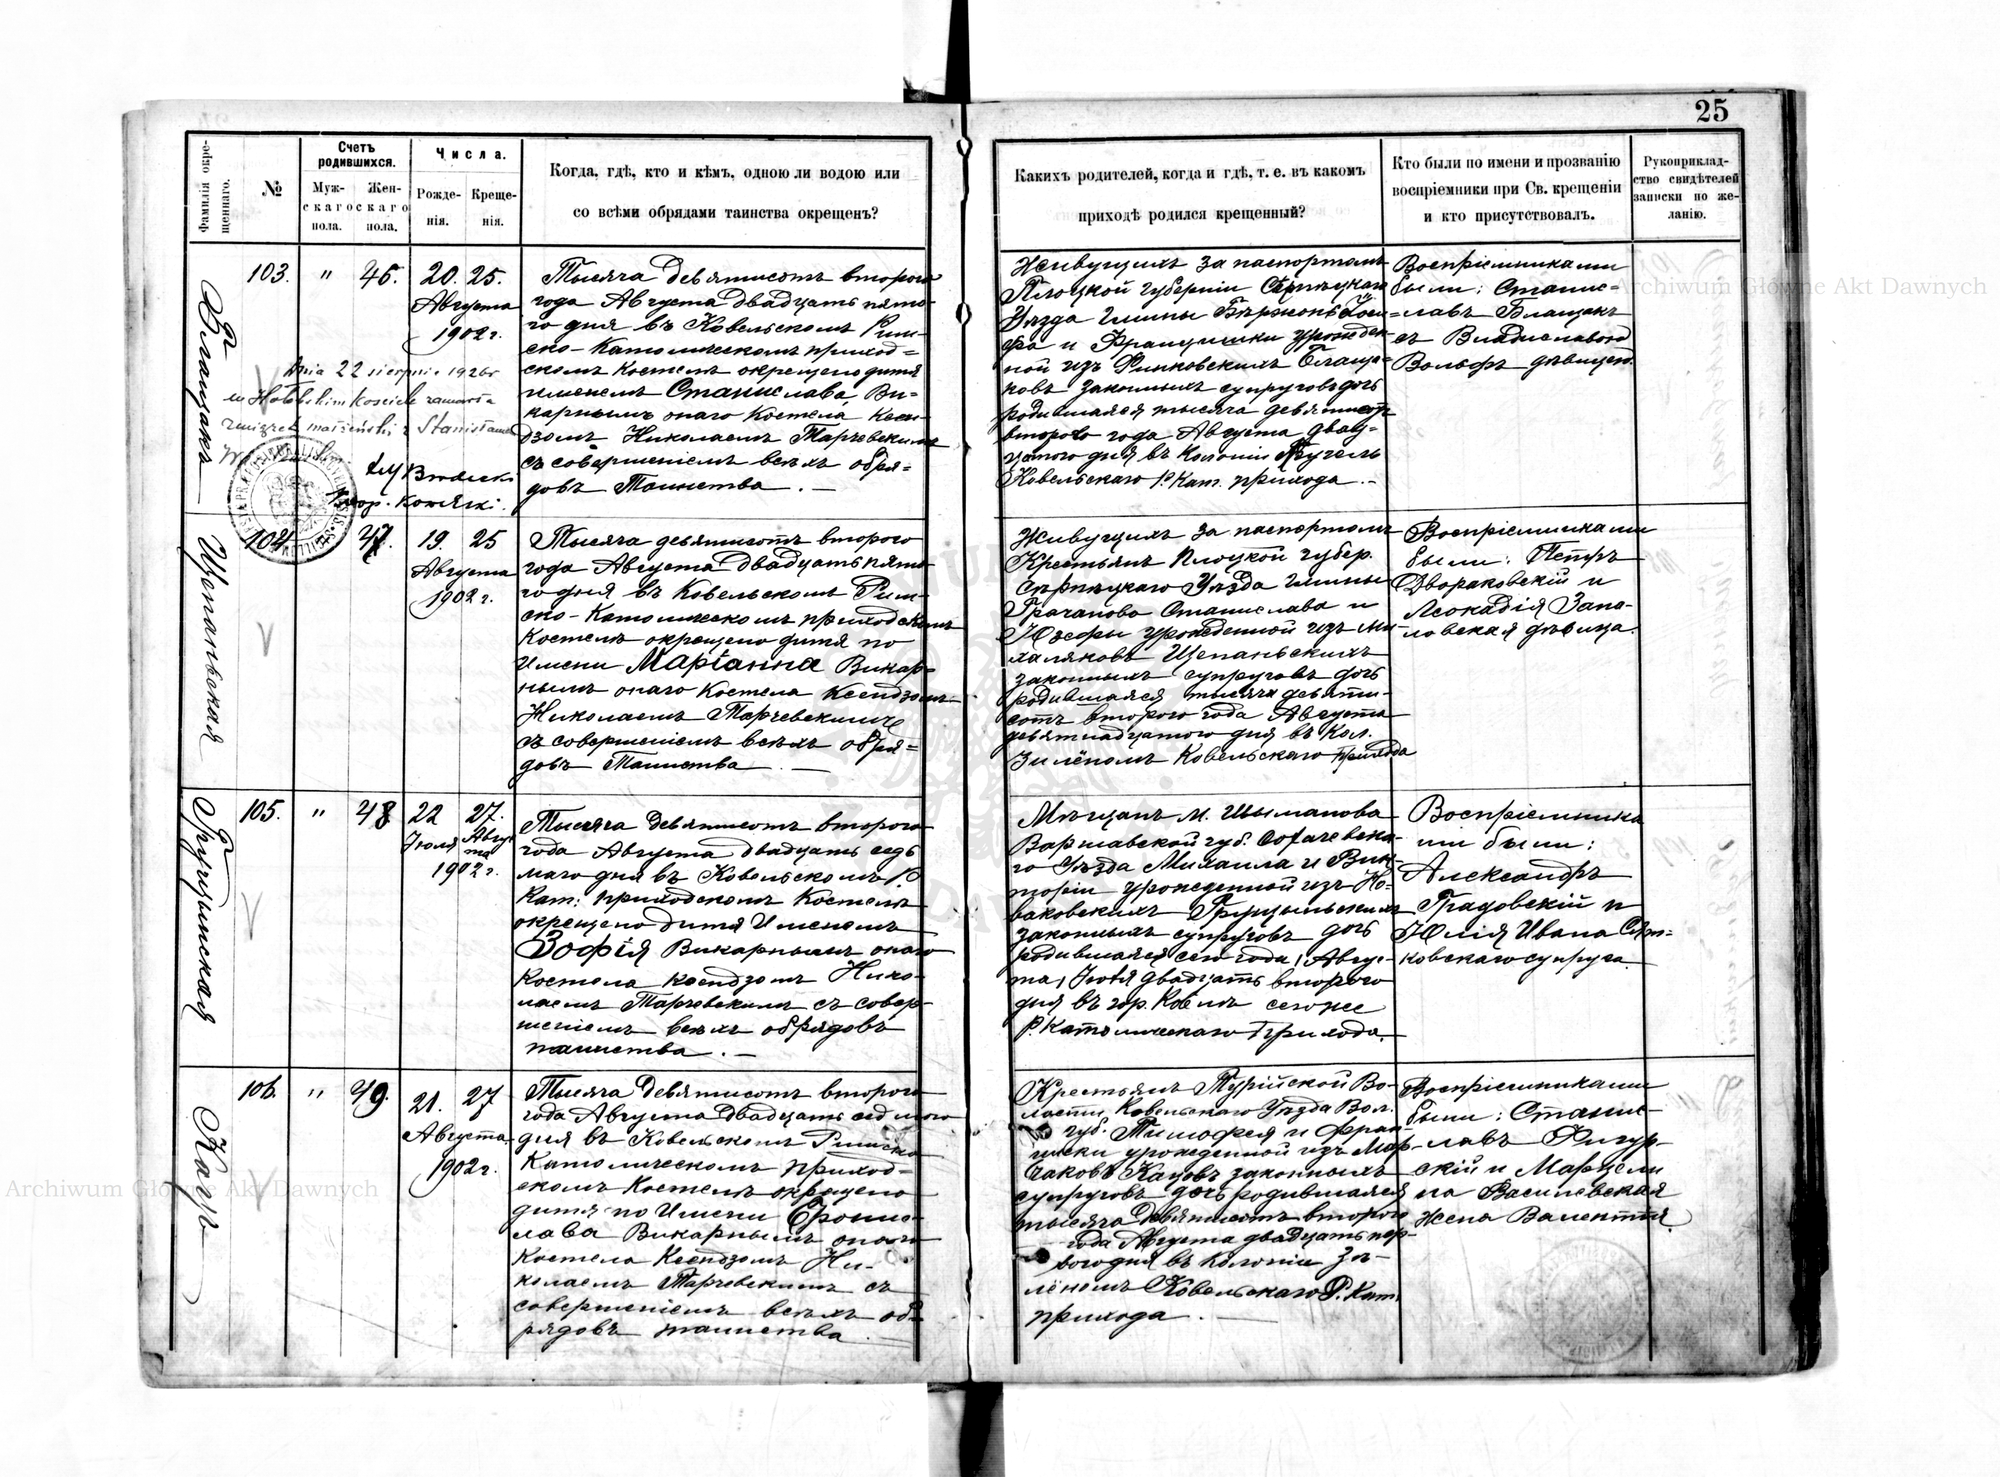 25
Фамилія окрещеннаго.
№
Счетъ родившихся.
Мужскаго пола.
Женскаго пола.
Числа.
Рожденія.
Крещенія.
Когда, гдѣ, кто и кѣмъ, одною ли водою или
со всѣми обрядами таинства окрещенъ?
Какихъ родителей, когда и гдѣ, т. е. въ какомъ
приходѣ родился крещенный?
Кто были по имени и прозванію
воспріемники при Св. крещеніи
и кто присутствовалъ.
Рукоприклад-
ство свидѣтелей
записки по же-
ланію.
103. " 46. 20. 25.
Августа
1902 г.
Тысяча девятисотъ второго
года Августа двадцать пято-
го дня въ Ковельскомъ Рим-
ско-Католическомъ приход=
скомъ костелѣ окрещено дитя
именемъ Станислава, Ви-
карнымъ онаго Костела Ксен-
дзомъ Николаемъ Тарчевскимъ
съ совершеніемъ всѣхъ обря=
довъ Таинства. —
Dnia 22 sierpnia 1926 r
w Hołobskim kościele zawarła
związek małżeński z Stanisławem
Живущихъ за паспортомъ
Плоцкой губерніи Серпецкаго
Уѣзда Гмины
фа и Францишки урожден-
ной изъ
ковъ законныхъ супруговъ дочь
родившаяся тысяча девятисот
второго года Августа двад=
цатого дня въ Колоніи
Ковельскаго Р. Кат. прихода. -
Воспріемниками
были: Станис=
лавъ Блащакъ
съ Владиславою
Вольфъ дѣвицею.
104 47. 19. 25
Щепаньская
Августа
1902 г.
Тысяча девятисотъ второго
года Августа двадцать пято
го дня въ Ковельскомъ Рим-
ско-Католическомъ приходскомъ
Костелѣ окрещено дитя по
имени Маріанна Викар=
нымъ онаго Костела Ксендзомъ
Николаемъ Тарчевскимъ
съ совершеніемъ всѣхъ обря=
довъ Таинства. —
Живущихъ за паспортомъ
Крестьянъ Плоцкой губер.
Серпецкаго Уѣзда Гмины
Станислава и
Юзефы урожденной изъ Ми-
халяковъ Щепаньскихъ
законныхъ супруговъ дочь
родившаяся тысяча девяти-
сотъ второго года Августа
девятнадцатого дня въ Кол.
Зилёномъ Ковельскаго прихода
Воспріемниками
были: Петръ
Двораковскій и
Леокадія Запа-
ловская дѣвица.
105. " 48 22 27.
Грудзынская
Іюля Авгу-
ста
1902 г.
Тысяча девятисотъ второго
года Августа двадцать седь
маго дня въ Ковельскомъ Р.
Кат. приходскомъ Костелѣ
окрещено дитя Именемъ
Зофія Викарнымъ онаго
Костела ксендзомъ Нико-
лаемъ Тарчевскимъ съ совер-
шеніемъ всѣхъ обрядовъ
таинства. —
Мѣщанъ м.
Варшавской губ. Сохачевска-
го Уѣзда Михаила и Вик-
торіи урожденной изъ Но-
ваковскихъ
законныхъ супруговъ дочь
родившаяся сего года, Авгус-
та, Іюля двадцать второго
дня въ гор. Ковелѣ сего же
Р. Католическаго Прихода.
Воспріемника
ми были:
Александръ
Градовскій и
Юлія Ивана
ковскаго супруга.
106. " 49. 21. 27
Кацъ
Августа
1902 г.
Тысяча девятисотъ второго
года Августа двадцать седьмого
дня въ Ковельскомъ Римско
Католическомъ приход-
скомъ Костелѣ окрещено
дитя по Имени Бронис-
лава Викарнымъ онаго
Костела Ксендзомъ Ни-
колаемъ Тарчевскимъ съ
совершеніемъ всѣхъ об-
рядовъ таинства. —
Крестьянъ Турійской Во-
лости Ковельскаго Уѣзда Вол.
губ. Тимофея и Фран
циски урожденной изъ
законныхъ
супруговъ дочь родившаяся
тысяча девятисотъ второго
года Августа двадцать пер-
вого дня въ колоніи Зи-
лёномъ Ковельскаго Р. Кат.
прихода. —
Воспріемниками
были: Станис-
лавъ Фигур-
скій и Марцели
на Василевская
жена Валентія
Archiwum Główne Akt Dawnych
Archiwum Główne Akt Dawnych